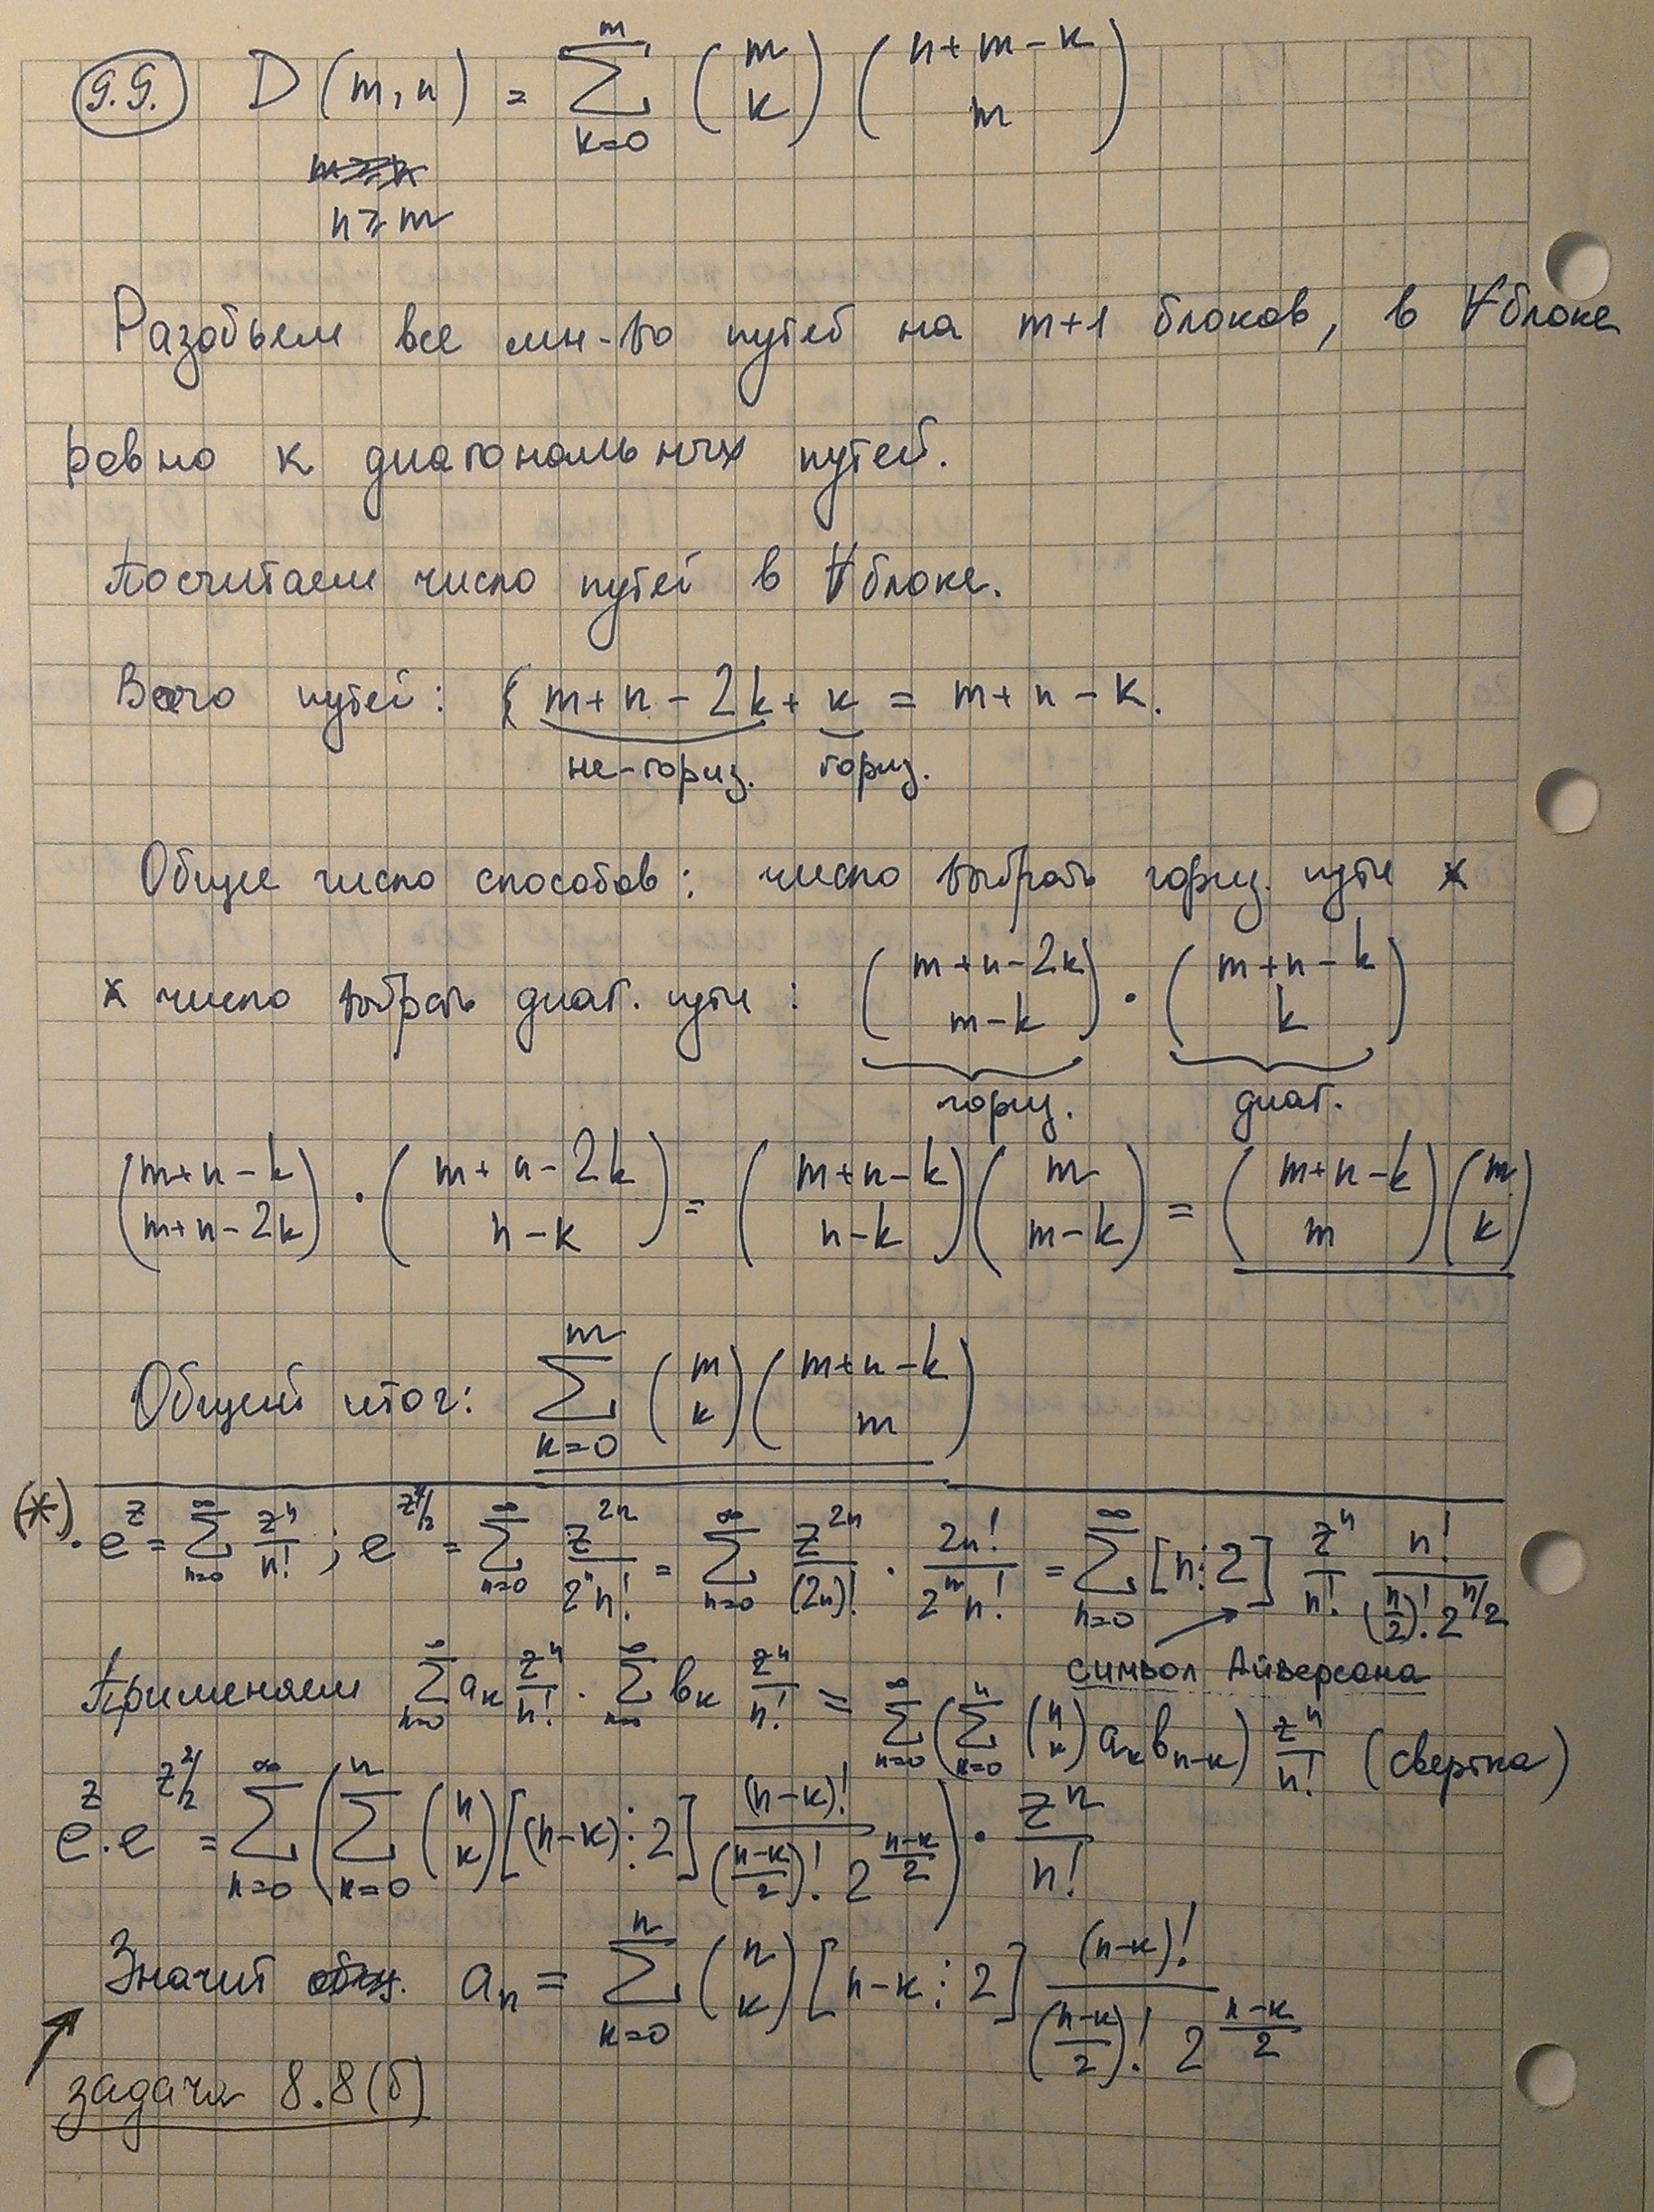 9.9. D(m,n) = \sum_{k=0}^{m} \binom{m}{k} \binom{n+m-k}{m}
n ≥ m
Разобьем все мн-во путей на m+1 блоков, в ∀ блоке
ровно k диагональных путей.
Посчитаем число путей в ∀ блоке.
Всего путей: m+n-2k + k = m+n-k.
не-гориз. гориз.
Общее число способов: число выбрать гориз. пути ×
× число выбрать диаг. пути: \binom{m+n-2k}{m-k} · \binom{m+n-k}{k}
гориз. диаг.
\binom{m+n-k}{m+n-2k} · \binom{m+n-2k}{n-k} = \binom{m+n-k}{n-k} \binom{m}{m-k} = \binom{m+n-k}{m} \binom{m}{k}
Общий итог: \sum_{k=0}^{m} \binom{m}{k} \binom{m+n-k}{m}
(*) · e^z = \sum_{n=0}^{∞} \frac{z^n}{n!}; e^{z^2/2} = \sum_{n=0}^{∞} \frac{z^{2n}}{2^n n!} = \sum_{n=0}^{∞} \frac{z^{2n}}{(2n)!} · \frac{2n!}{2^n n!} = \sum_{n=0}^{∞} [n⋮2] \frac{z^n}{n!} \frac{n!}{(\frac{n}{2})! 2^{n/2}}
символ Айверсона
Применяем \sum_{n=0}^{∞} a_k \frac{z^n}{n!} · \sum_{n=0}^{∞} b_k \frac{z^n}{n!} = \sum_{n=0}^{∞} (\sum_{k=0}^{n} \binom{n}{k} a_k b_{n-k}) \frac{z^n}{n!} (свертка)
e^z · e^{z^2/2} = \sum_{n=0}^{∞} (\sum_{k=0}^{n} \binom{n}{k} [(n-k)⋮2] \frac{(n-k)!}{(\frac{n-k}{2})! 2^{\frac{n-k}{2}}}) · \frac{z^n}{n!}
Значит a_n = \sum_{k=0}^{n} \binom{n}{k} [n-k⋮2] \frac{(n-k)!}{(\frac{n-k}{2})! 2^{\frac{n-k}{2}}}
задача 8.8(б)